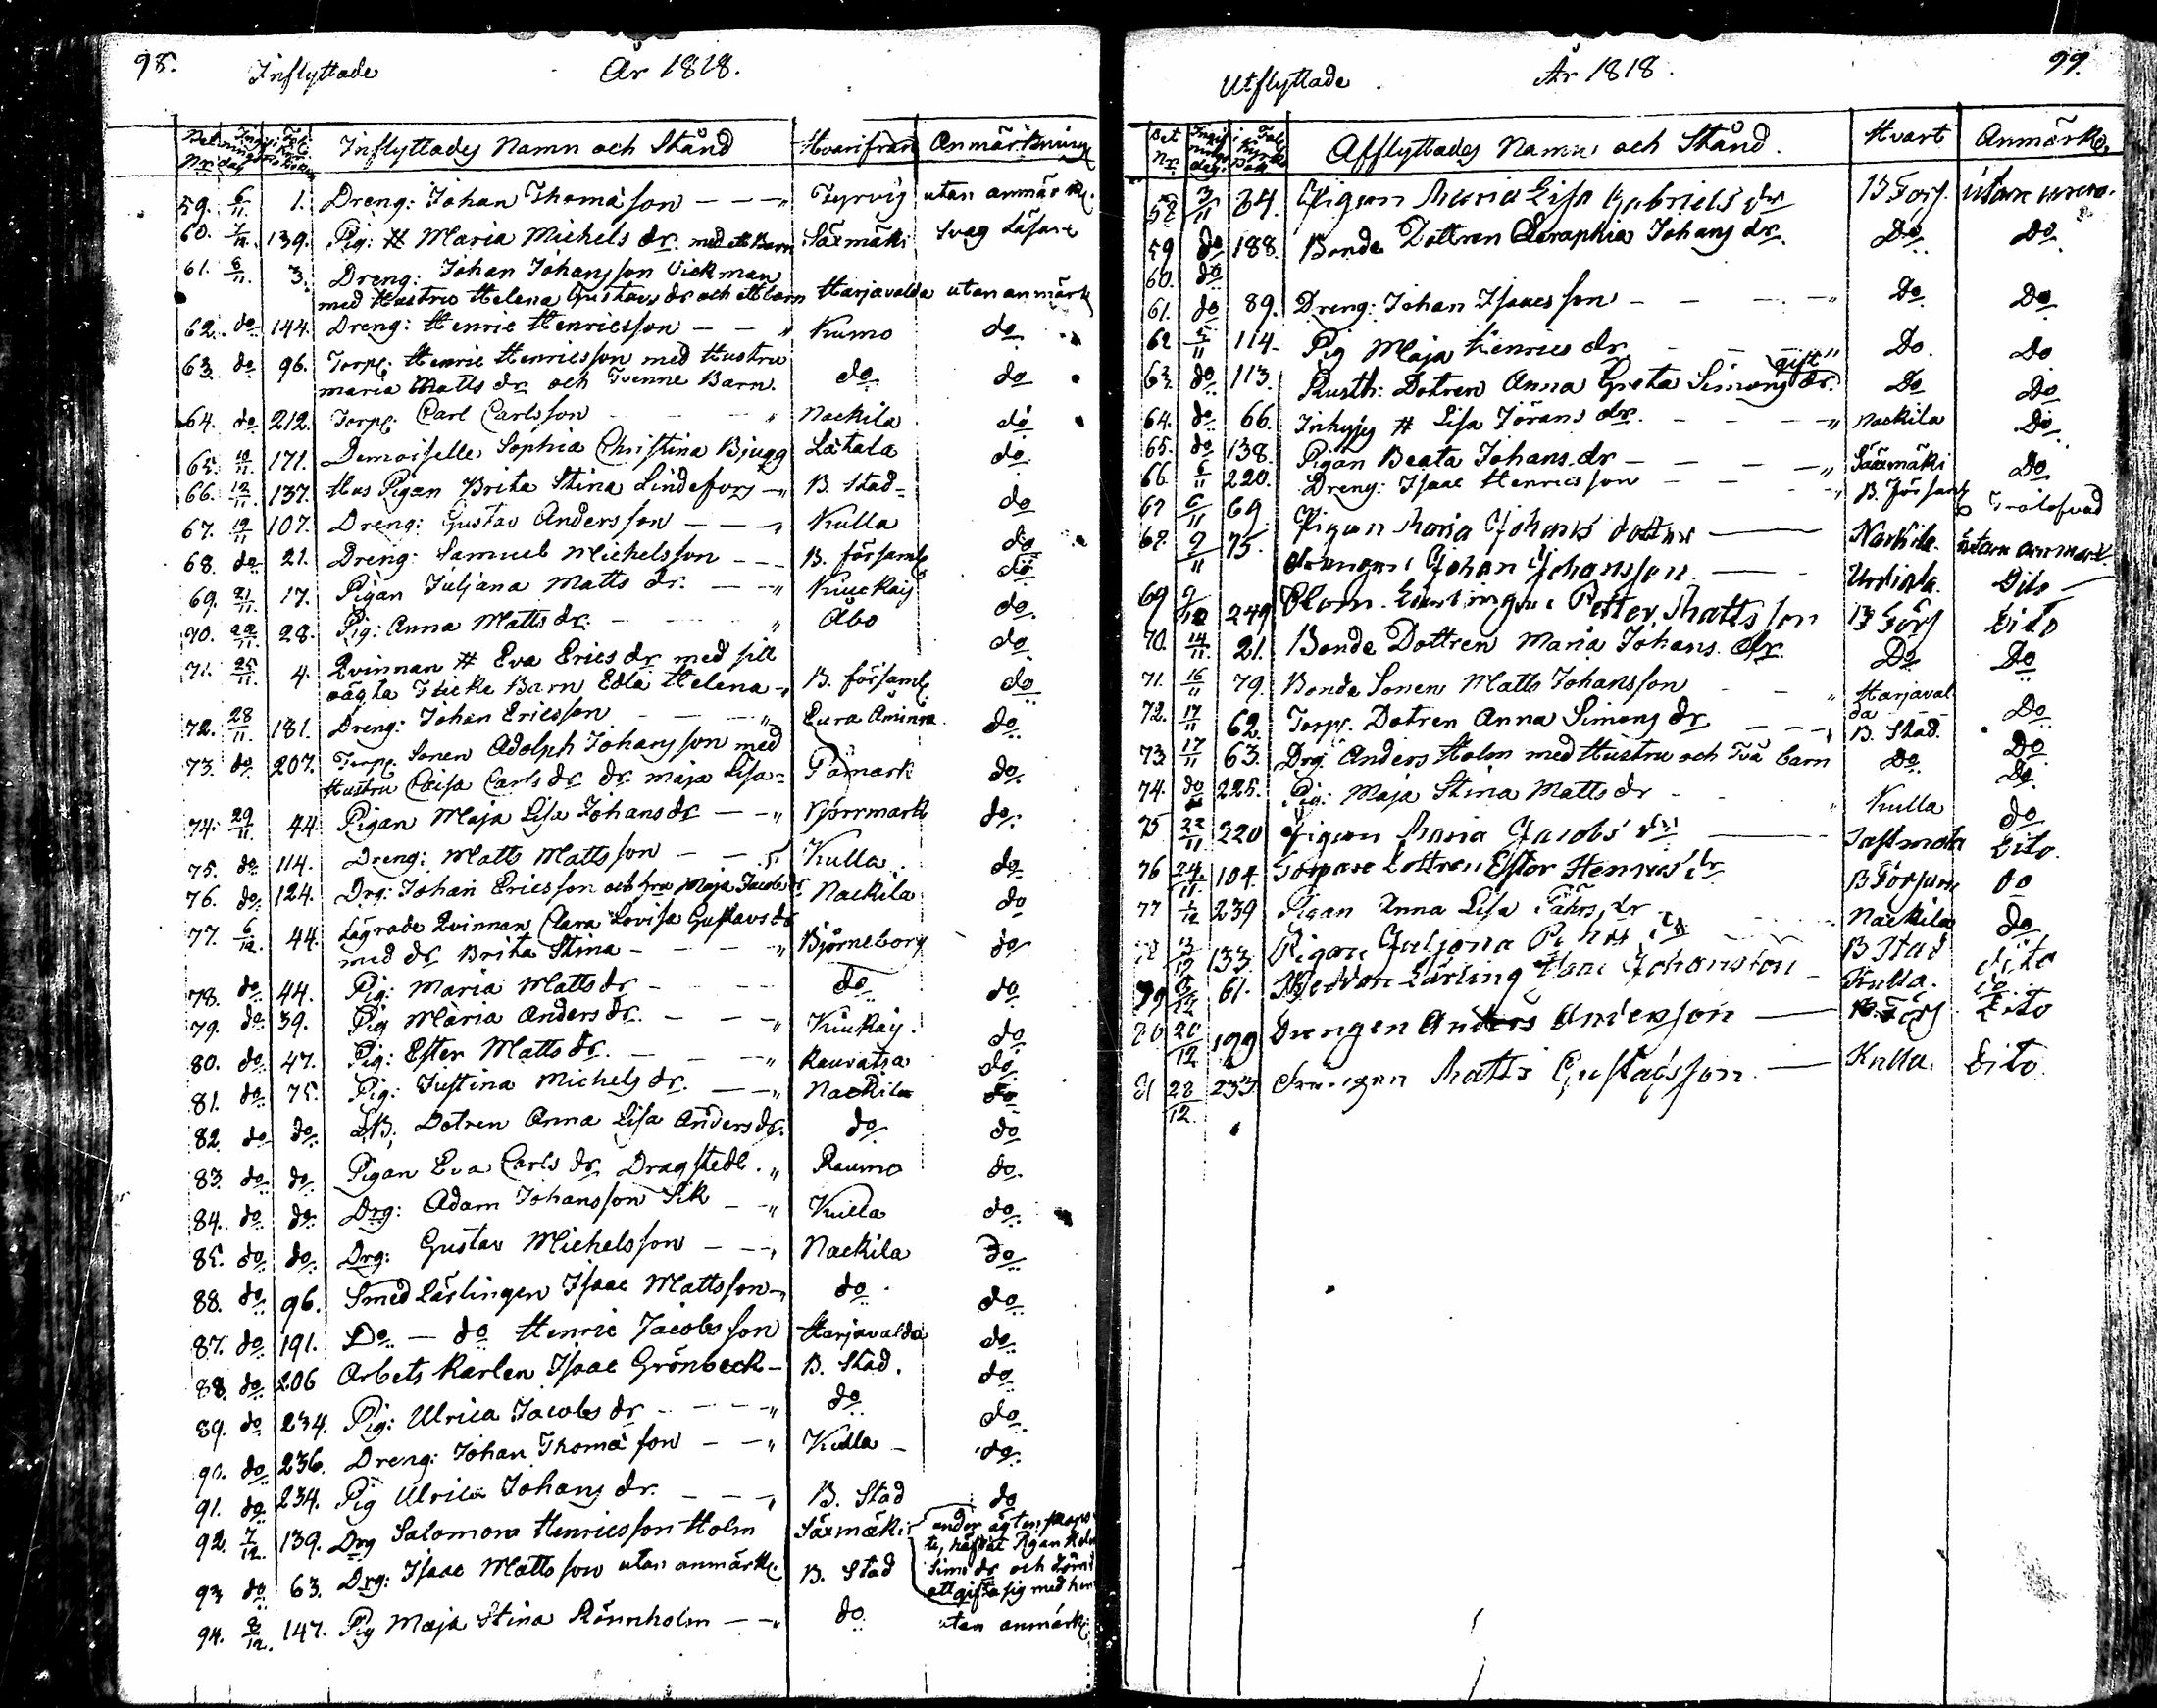 98. Inflyttade År 1818.
Inflyttades Namn och Stånd Hvarifrån Anmärkning
59. 6/11 1. Dreng: Johan Thomasson — — " Tyrvis utan anmärk.
60. 7/11 139. Pig: # Maria Michels dr. med ett Barn Säxmäki Svag Läsare
61. 8/11 3. Dreng: Johan Johansson Vickman
med Hustru Helena Gustavs dr och ett barn Harjavalda utan anmärk
62. do 144. Dreng: Henric Henricsson — — " Kumo do
63. do 96. Torp: Henric Henricsson med Hustru
maria Matts dr och Tvenne Barn. do do
64. do 212. Torp: Carl Carlsson " Nackila do
65. 10/11 171. Demoiselle Sophia Christina Bjugg Låtala do
66. 12/11 137. Hus Pigan Brita Stina Lindefors — " B. Stad do
67. 19/11 107. Dreng: Gustav Andersson — — " Kulla do
68. do 21. Dreng: Samuel Michelsson — — B. församl do
69. 21/11 17. Pigan Juljana Matts dr. — — " Kiuckais do
70. 22/11 28. Pig: Anna Matts dr. " Åbo do
71. 25/11 4. Qvinnan # Eva Erics dr med sitt
oägta Flicke Barn Edla Helena " B. församl do
72. 28/11 181. Dreng: Johan Ericsson " Eura Åminne do
73. do 207. Torp. Sonen Adolph Johansson med
Hustru Caisa Carls dr dr maja Lisa Påmark do
74. 29/11 44. Pigan Maja Lisa Johans dr — — " Norrmark do
75. do 114. Dreng: Matts Mattsson — " Kulla do
76. do 124. Drg: Johan Ericsson och hru Maja Jacobs dr Nackila do
77. 6/12 44. Lägrade Qvinnan Clara Lovisa Gustavs dr
med dr Brita Stina — — " Björneborg do
78. do 44. Pig: Maria Matts dr — do do
79. do 39. Pig Maria Anders dr. — — " Kiukais do
80. do 47. Pig: Ester Matts dr. — — " Kauvatsa do
81. do 75. Pig: Justina Michels dr. — — " Nackila do
82 do do Dotren Anna Lisa Anders dr. do do
83. do do Pigan Eva Carls dr Dragstedt. " Raumo do
84. do do Drg: Adam Johansson Sik — " Kulla do
85. do do Drg: Gustav Michelsson — — " Nackila do
88. do 96. Smed Lärlingen Isaac Mattsson " do do
87. do 191. Do — do Henric Jacobsson Harjavalda do
88. do 206 Arbets karlen Isaac Grönbeck — B. Stad. do
89. do 234. Pig: Ulrica Jacobs dr — — " do do
90. do 236. Dreng: Johan Thomasson — — " Kulla — do
91. do 234. Pig Ulrica Johans dr. — — " B. Stad do
92. 7/12 139. Drg Salomon Henricsson Holm Säxmäki under ägtenskaps
te, häfdat Pigan
Sims dr och
att gifta sig med hen
93 do 63. Drg: Isaac Mattsson utan anmärk. B. Stad
94. 8/12 147. Pig Maja Stina Rönnholm — — " do utan anmärk
Utflyttade År 1818. 99.
Bet Nr. Afflyttades Namn och Stånd. Hvart Anmärk
58 3/11 34. Pigan Maria Lisa Gabriels dr B Förs. utan anm.
59 do 188. Bonde Dottren Seraphia Johans dr. Do Do
60. do
61. do 89. Dreng: Johan Isaacsson — — " Do Do
62 5/11 114. Pig Maja Henrics dr — — " Do Do
63. do 113. Rusth: Dotren Anna Greta Simons dr. gift Do Do
64. do 66. Inhyses # Lisa Jörans dr. — — " Nackila Do
65. do 138. Pigan Beata Johans dr — — " Säxmäki Do
66. 6/11 220. Dreng: Isaac Henricsson — — " B. Församl
67 6/11 69 Pigan Maria Johans dotter — Nackila utan anmärk.
68. 9/11 75. Drengen Johan Johansson — Urdiala Dito
69 9/10 249 Petter Mattsson B Förs Dito
70. 14/11 21. Bonde Dottren Maria Johans dr. Do Do
71. 16/11 79. Bonde Sonen Matts Johansson — " Harjaval
da Do
72. 17/11 62. Torp. Dotren Anna Simons dr — — " B. Stad Do
73. 17/11 63. Drg Anders Holm med Hustru och Två barn Do Do
74. do 225. Pig: Maja Stina Matts dr " Kulla do
75 22/11 220 Pigan Maria Jacobs dr — Sastmola Dito
76 24/11 104. Torpare Dottren Ester Henrics dr B Församl do
77 1/12 239 Pigan Anna Lisa Fährs dr Nackila do
13/12 133. Pigan Juljana dr B Stad dito
79 61. Lärling Johansson Kulla. do
80 20/12 199 Drengen Anders Andersson — B. Förs Dito
81 28/12 233 Drengen Matts Gustafsson. — Kulla. Dito